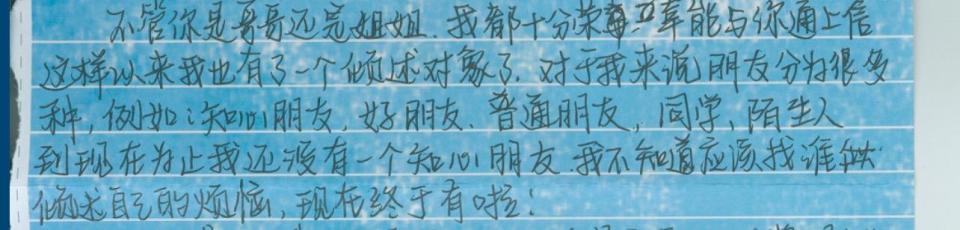 不管你是哥哥还是姐姐.我都十分荣尊.幸能与你通上信
这样以来我也有了一个倾述对象了.对于我来说朋友分为很多
种,例如:知心朋友,好朋友.普通朋友,同学、陌生人
到现在为止我还没有一个知心朋友.我不知道应该找谁去
倾述自己的烦恼,现在终于有啦!